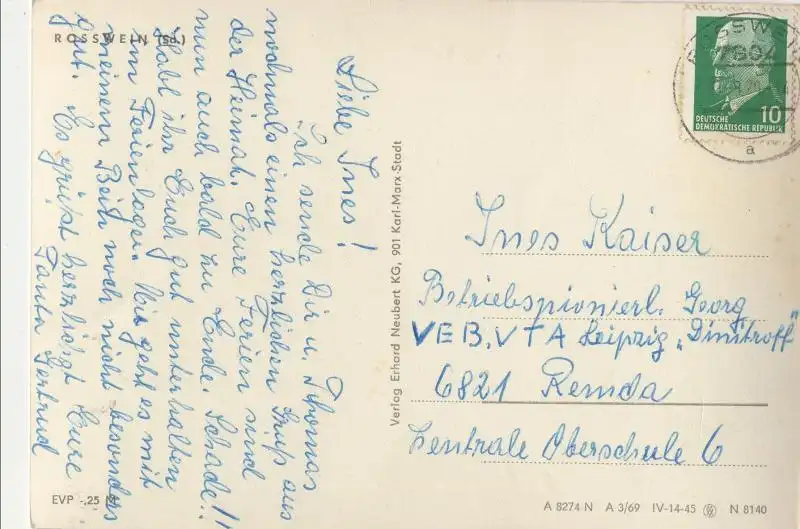 ROSSWEIN (Sa.)
Liebe Ines!
Ich sende Dir u. Thomas
nochmals einen herzlichen Gruß aus
der Heimat. Eure Ferien sind
nun auch bald zu Ende. Schade!!
Habt ihr Euch gut unterhalten
im Ferienlager. Mir geht es mit
meinem Bein noch nicht besonders
gut. Es grüßt herzlichst Eure
Tante Gertrud
EVP -,25 M
Verlag Erhard Neubert KG, 901 Karl-Marx-Stadt
ROSSWEIN
a
10
DEUTSCHE
DEMOKRATISCHE REPUBLIK
Ines Kaiser
Betriebspionierl. Georg
VEB, VTA Leipzig „Dimitroff"
6821 Remda
Zentrale Oberschule 6
A 8274 N A 3/69 IV-14-45 N 8140